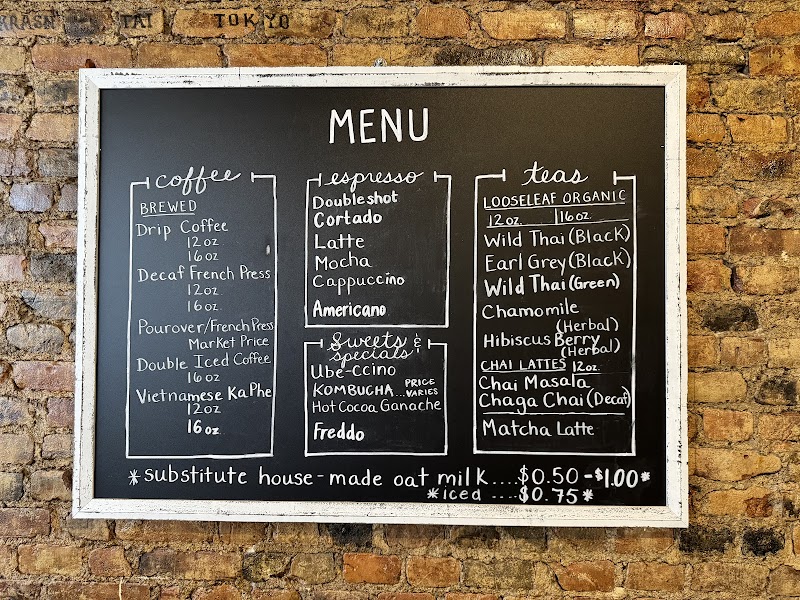 TAI TOKYO
MENU
coffee
BREWED
Drip Coffee
12 oz
16 oz
Decaf French Press
12 oz.
16 oz.
Pourover/French Press
Market Price
Double Iced Coffee
16 oz
Vietnamese Ka Phe
12 oz
16 oz
espresso
Double shot
Cortado
Latte
Mocha
Cappuccino
Americano
Sweets &
specials
Ube-ccino
KOMBUCHA...PRICE VARIES
Hot Cocoa Ganache
Freddo
teas
LOOSELEAF ORGANIC
12 oz. | 16 oz.
Wild Thai (Black)
Earl Grey (Black)
Wild Thai (Green)
Chamomile
(Herbal)
Hibiscus Berry
(Herbal)
CHAI LATTES 12 oz.
Chai Masala
Chaga Chai (Decaf)
Matcha Latte
*substitute house-made oat milk....$0.50-$1.00*
*iced ....$0.75*